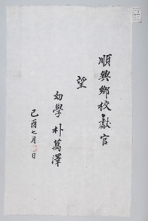 順興鄉校獻官
望
幼學 朴萬澤
己酉七月 日